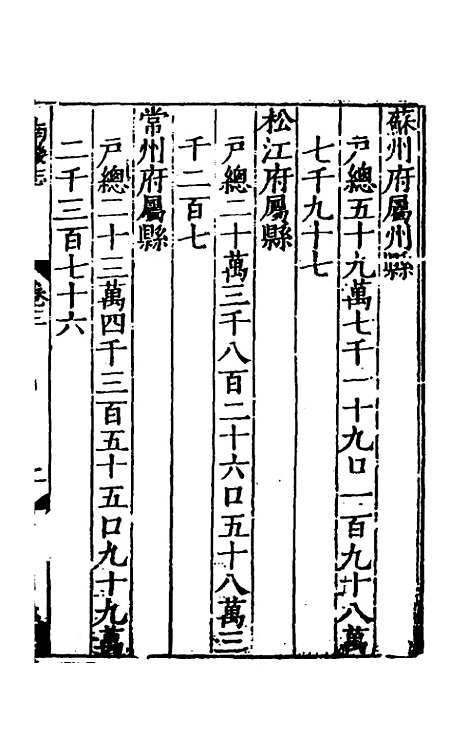 蘇州府屬州縣
戸總五十九萬七千一十九口一百九十八萬
七千九十七
松江府屬縣
戸總二十萬三千八百二十六口五十八萬三
千二百七
常州府屬縣
戸總二十三萬四千三百五十五口九十九萬
二千三百七十六
卷三
二